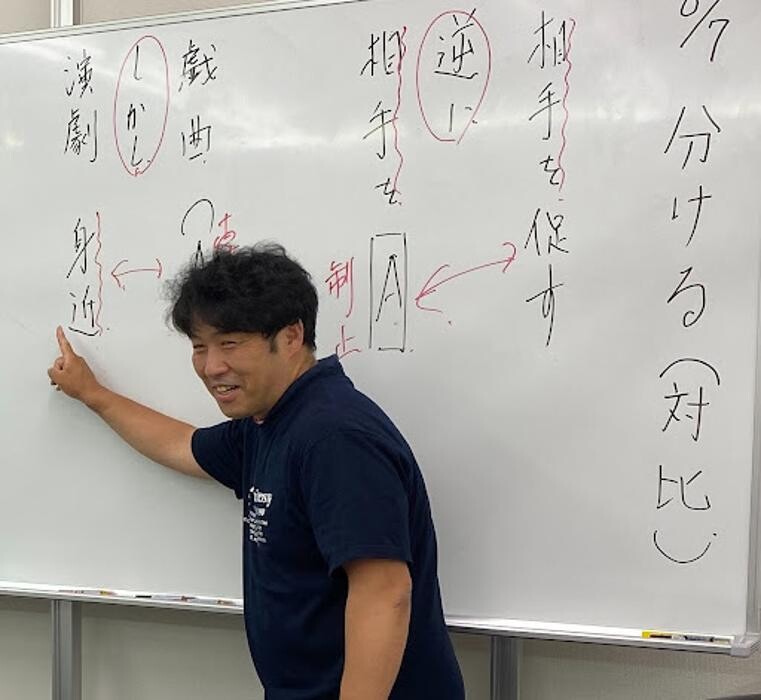 分ける(対比)
相手を促す
逆に
相手をA
制止
戯曲
しかし
演劇 身近